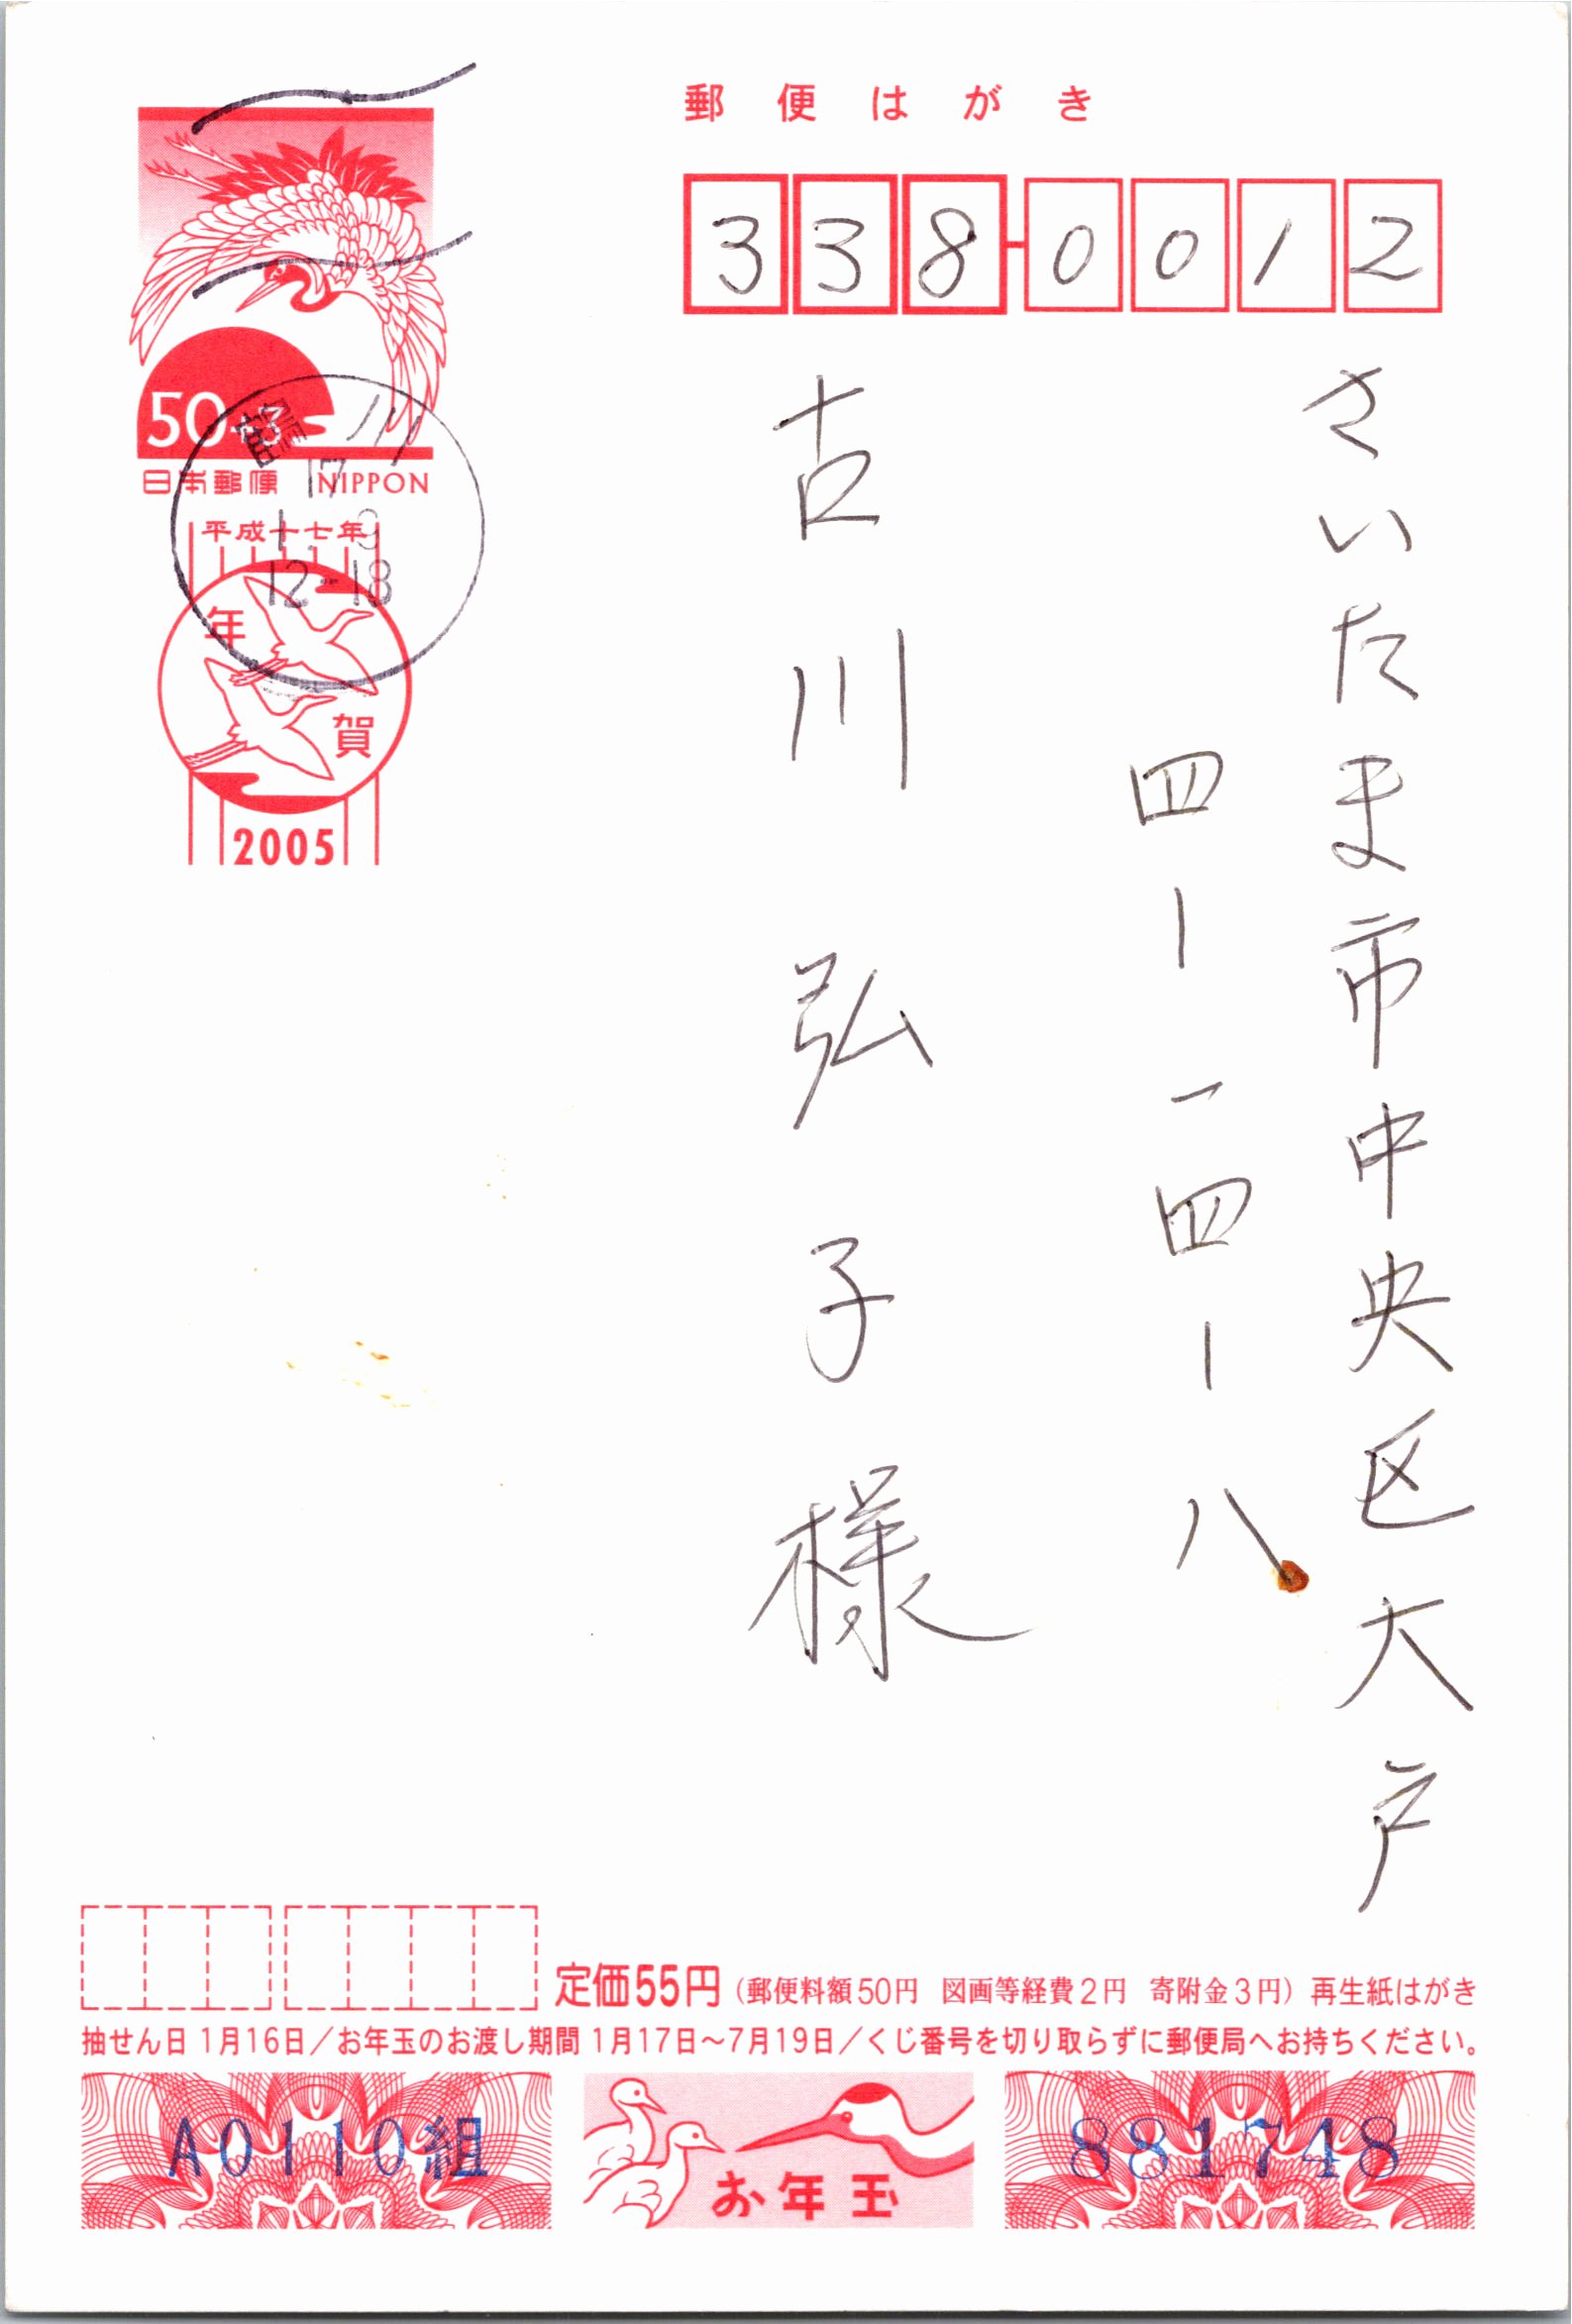 郵便はがき
338-0012
さいたま市中央区大戸
四ー一四ー八
古川弘子様
50+3
日本郵便 NIPPON
川
17
1. 9
12-18
平成十七年
年賀
2005
定価55円（郵便料額50円 図画等経費2円 寄附金3円）再生紙はがき
抽せん日 1月16日／お年玉のお渡し期間 1月17日〜7月19日／くじ番号を切り取らずに郵便局へお持ちください。
A0110組
お年玉
881748